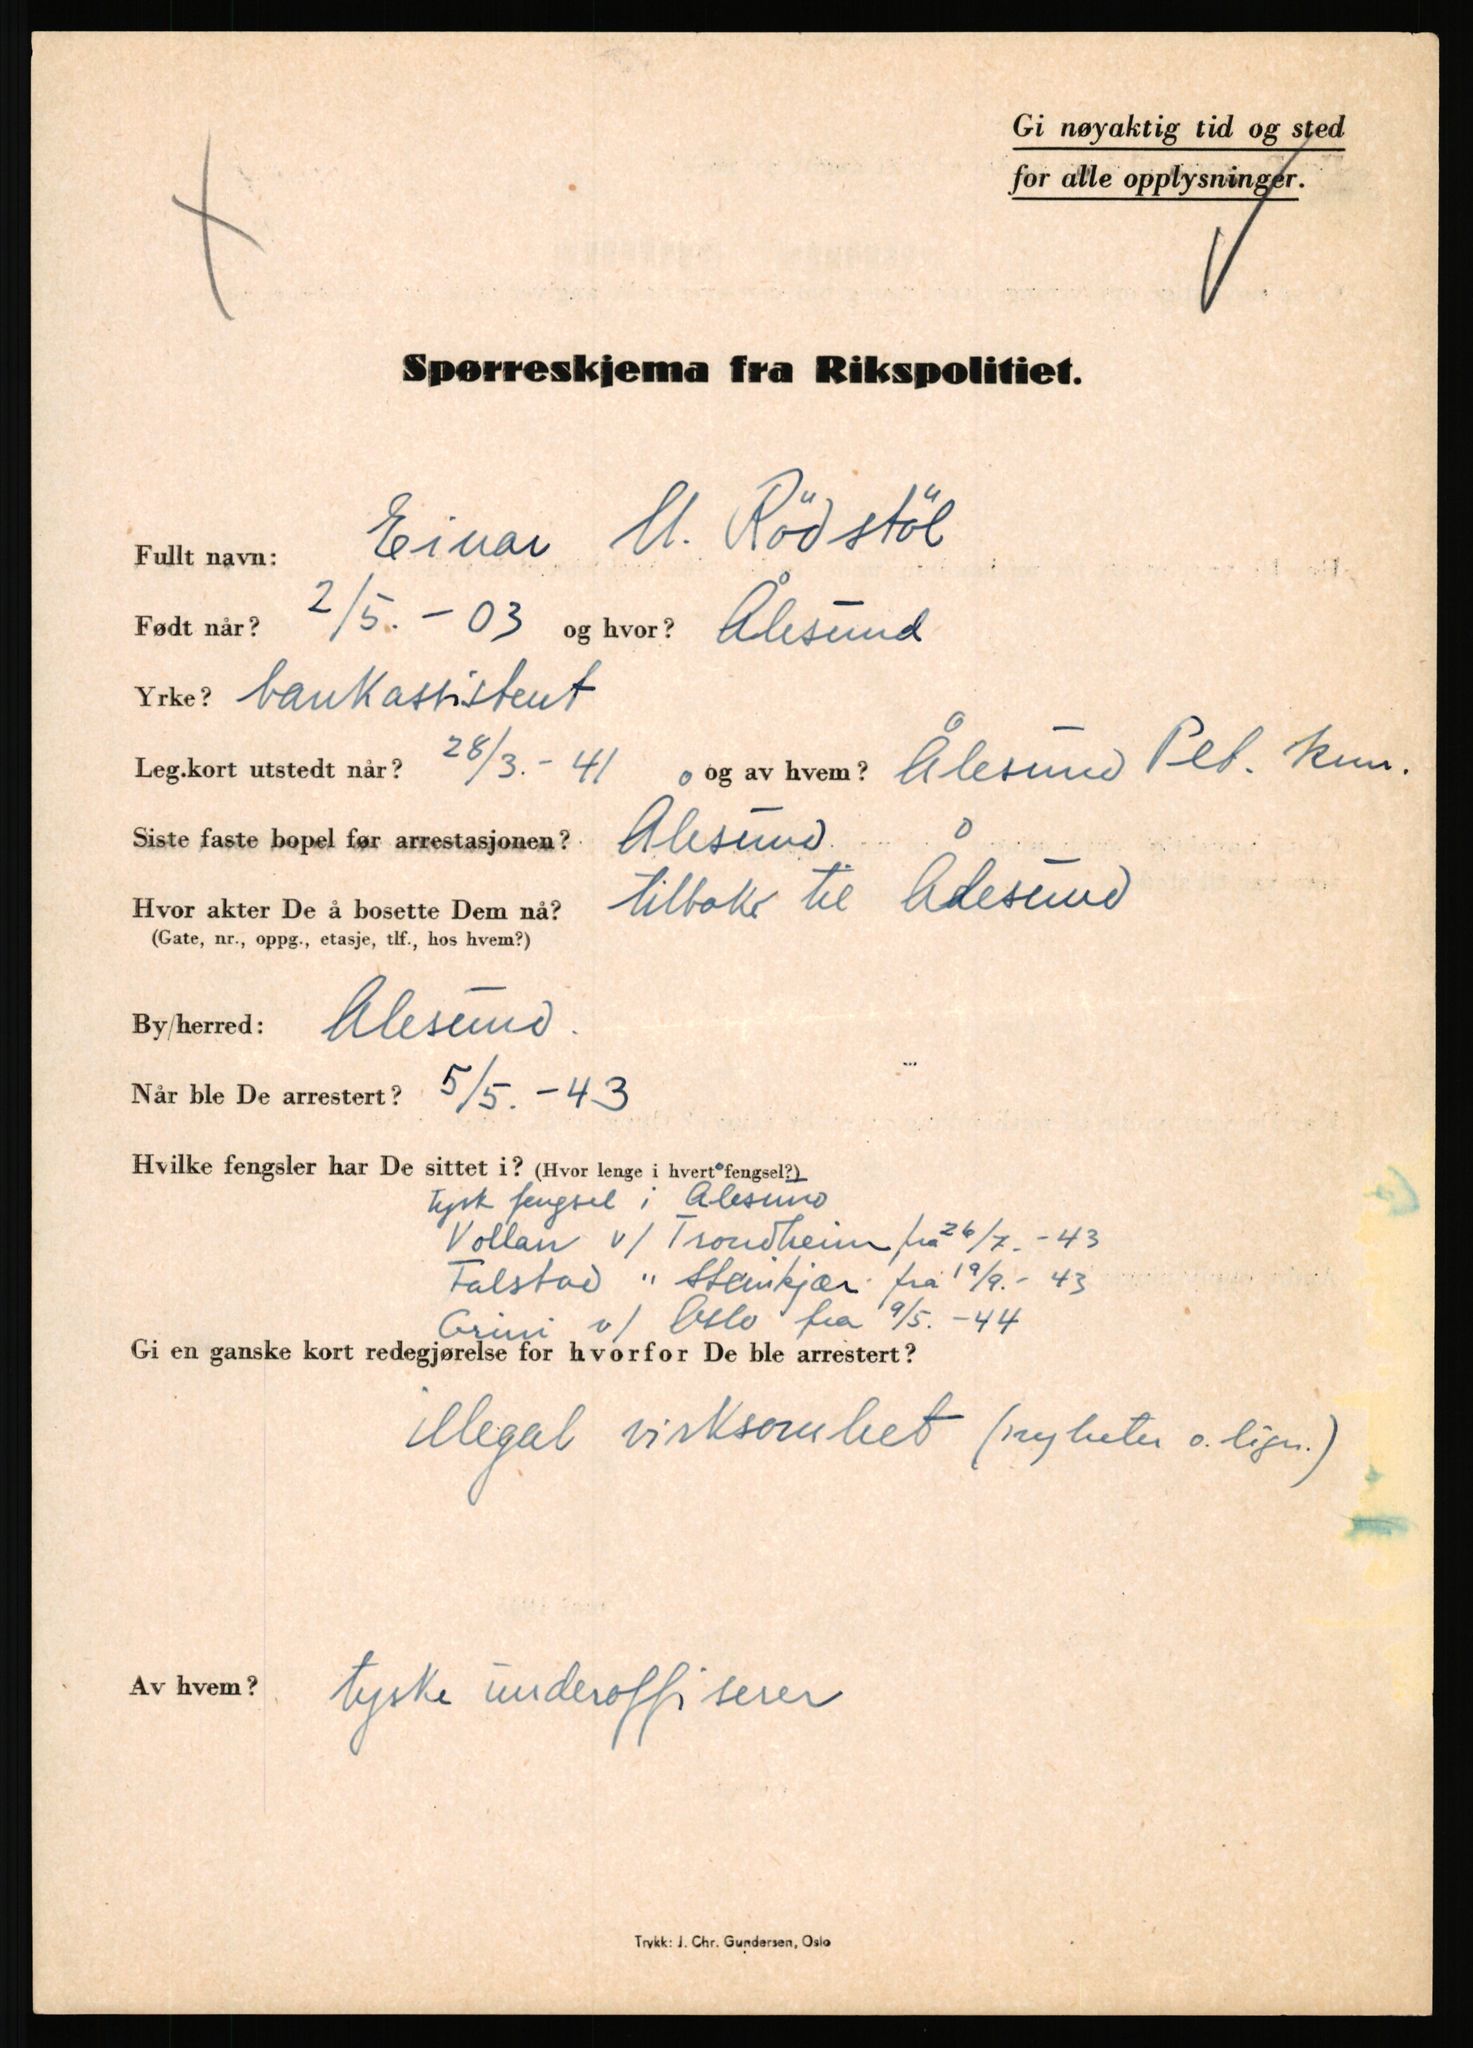 Gi nøyaktig tid og sted
for alle opplysninger.
Spørreskjema fra Rikspolitiet.
Fullt navn: Einar U. Rödstöl
Født når? 2/5. - 03 og hvor? Ålesund
Yrke? bankassistent
Leg.kort utstedt når? 28/3. - 41 og av hvem? Ålesund Plt. km.
Siste faste bopel før arrestasjonen? Ålesund
Hvor akter De å bosette Dem nå? tilbake til Ålesund
(Gate, nr., oppg., etasje, tlf., hos hvem?)
By/herred: Ålesund.
Når ble De arrestert? 5/5. - 43
Hvilke fengsler har De sittet i? (Hvor lenge i hvert fengsel?)
tysk fengsel i Ålesund
Vollan v/ Trondheim fra 26/7. - 43
Falstad " Steinkjær fra 19/9. - 43
Grini v/ Oslo fra 9/5. - 44
Gi en ganske kort redegjørelse for hvorfor De ble arrestert?
illegal virksomhet (nyheter o. lign.)
Av hvem? tyske underoffiserer
Trykk: J. Chr. Gundersen, Oslo